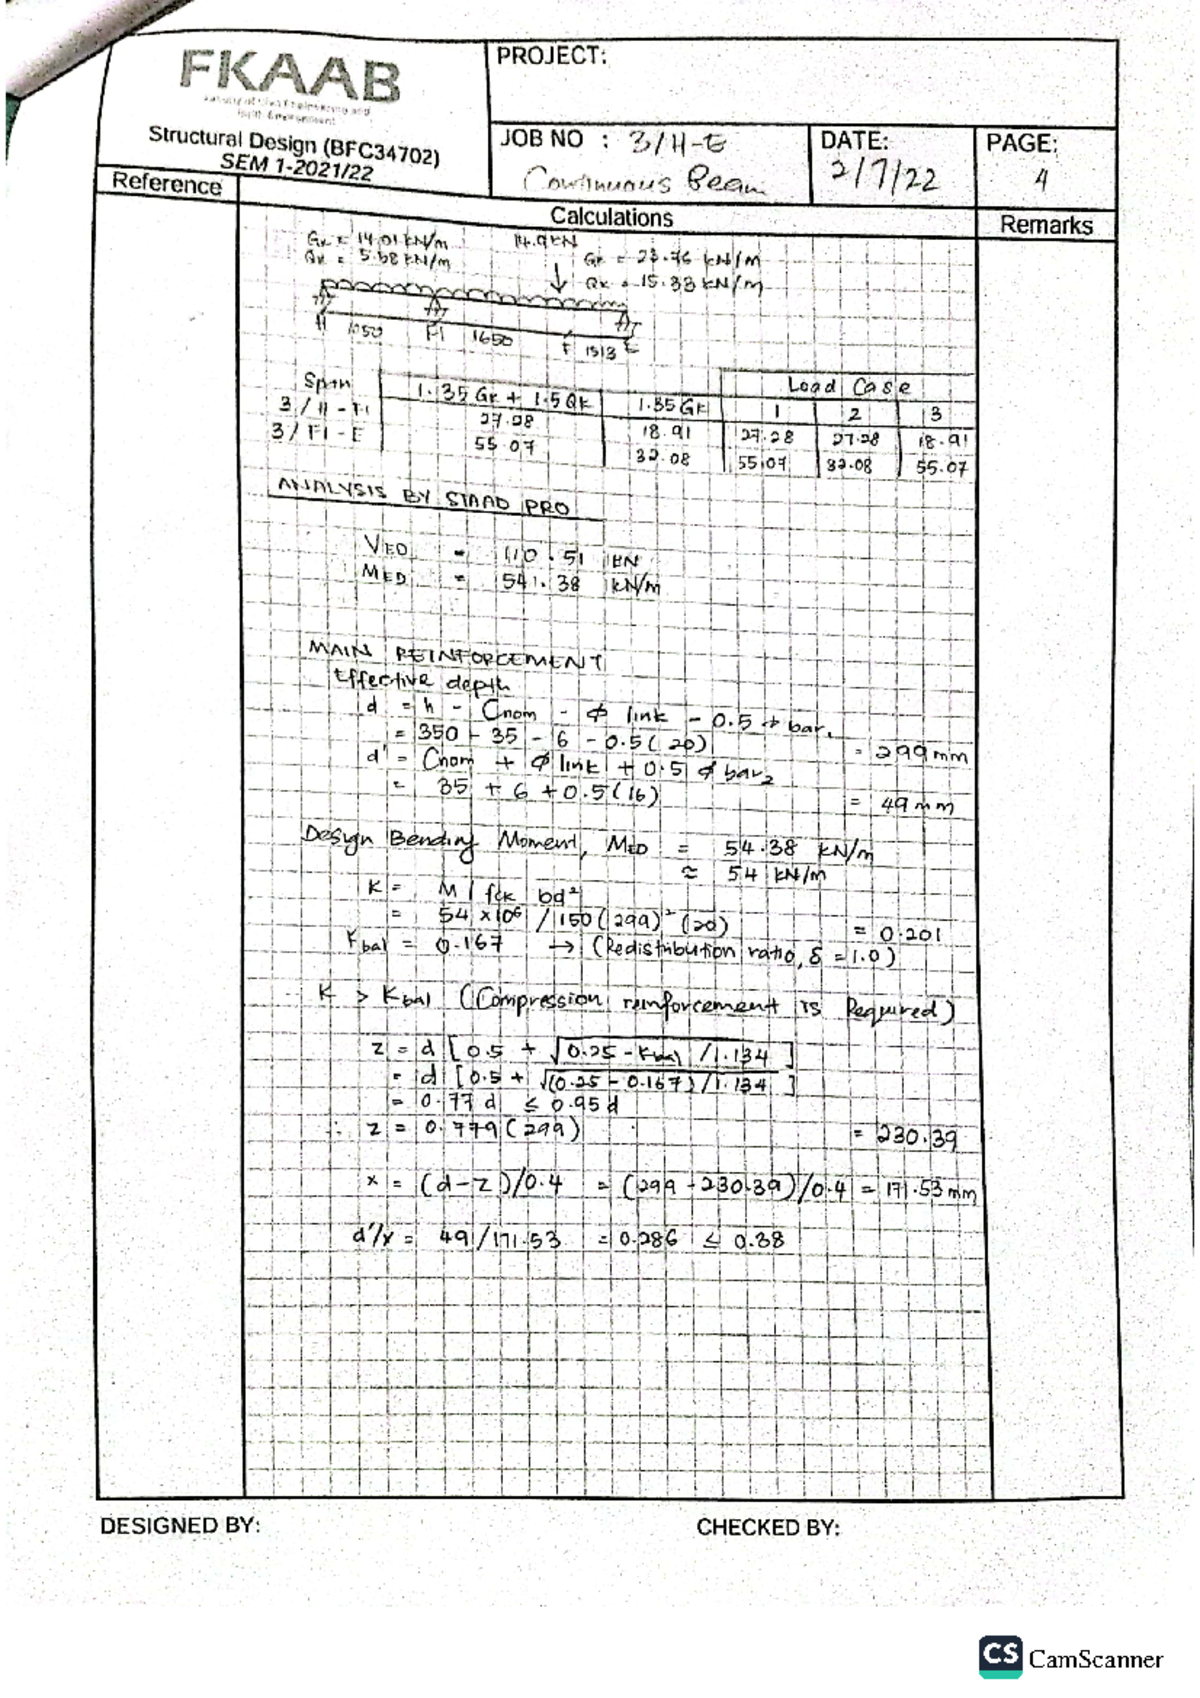 FKAAB
Faculty of Civil Engineering and
Built Environment
Structural Design (BFC34702)
SEM 1-2021/22
PROJECT:
JOB NO : 3/H-E
Continuous Beam
DATE:
2/7/22
PAGE:
4
Reference
Calculations
Remarks
Gk = 14.01 kN/m
Qk = 5.58 kN/m
14.9 kN
Gk = 23.76 kN/m
Qk = 15.33 kN/m
H 1050 F1 1650 F 1513 E
Load Case
Span 1.35 Gk + 1.5 Qk 1.35 Gk 1 2 3
3/H-F1 27.28 18.91 27.28 27.28 18.91
3/F1-E 55.07 32.08 55.07 32.08 55.07
ANALYSIS BY STAAD PRO
VED = 110.51 kN
MED = 541.38 kN/m
MAIN REINFORCEMENT
Effective depth
d = h - Cnom - φ link - 0.5 φ bar1
= 350 - 35 - 6 - 0.5(20) = 299 mm
d' = Cnom + φ link + 0.5 φ bar2
= 35 + 6 + 0.5(16) = 49 mm
Design Bending Moment, MED = 54.38 kN/m
≈ 54 kN/m
K = M / fck bd²
= 54 x10⁶ / 150(299)² (20) = 0.201
Kbal = 0.167 → (Redistribution ratio, δ = 1.0)
K > Kbal (Compression reinforcement is Required)
z = d [0.5 + √0.25 - Kbal / 1.134 ]
= d [0.5 + √(0.25 - 0.167) / 1.134 ]
= 0.77 d ≤ 0.95 d
∴ z = 0.779 (299) = 230.39
x = (d-z)/0.4 = (299 - 230.39)/0.4 = 171.53 mm
d'/x = 49/171.53 = 0.286 ≤ 0.38
DESIGNED BY:
CHECKED BY:
CS CamScanner